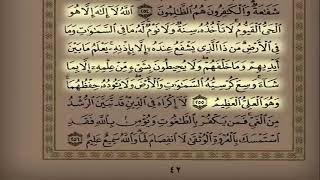 شَفَـٰعَةٌ وَٱلْكَـٰفِرُونَ هُمُ ٱلظَّـٰلِمُونَ ٢٥٤ ٱللَّهُ لَآ إِلَـٰهَ إِلَّا هُوَ
ٱلْحَىُّ ٱلْقَيُّومُ لَا تَأْخُذُهُۥ سِنَةٌ وَلَا نَوْمٌ لَّهُۥ مَا فِى ٱلسَّمَـٰوَٰتِ وَمَا
فِى ٱلْأَرْضِ مَن ذَا ٱلَّذِى يَشْفَعُ عِندَهُۥٓ إِلَّا بِإِذْنِهِۦ يَعْلَمُ مَا بَيْنَ
أَيْدِيهِمْ وَمَا خَلْفَهُمْ وَلَا يُحِيطُونَ بِشَىْءٍ مِّنْ عِلْمِهِۦٓ إِلَّا بِمَا
شَآءَ وَسِعَ كُرْسِيُّهُ ٱلسَّمَـٰوَٰتِ وَٱلْأَرْضَ وَلَا يَـُٔودُهُۥ حِفْظُهُمَا
وَهُوَ ٱلْعَلِىُّ ٱلْعَظِيمُ ٢٥٥ لَآ إِكْرَاهَ فِى ٱلدِّينِ قَد تَّبَيَّنَ ٱلرُّشْدُ
مِنَ ٱلْغَىِّ فَمَن يَكْفُرْ بِٱلطَّـٰغُوتِ وَيُؤْمِنۢ بِٱللَّهِ فَقَدِ
ٱسْتَمْسَكَ بِٱلْعُرْوَةِ ٱلْوُثْقَىٰ لَا ٱنفِصَامَ لَهَا وَٱللَّهُ سَمِيعٌ عَلِيمٌ ٢٥٦
٤٢